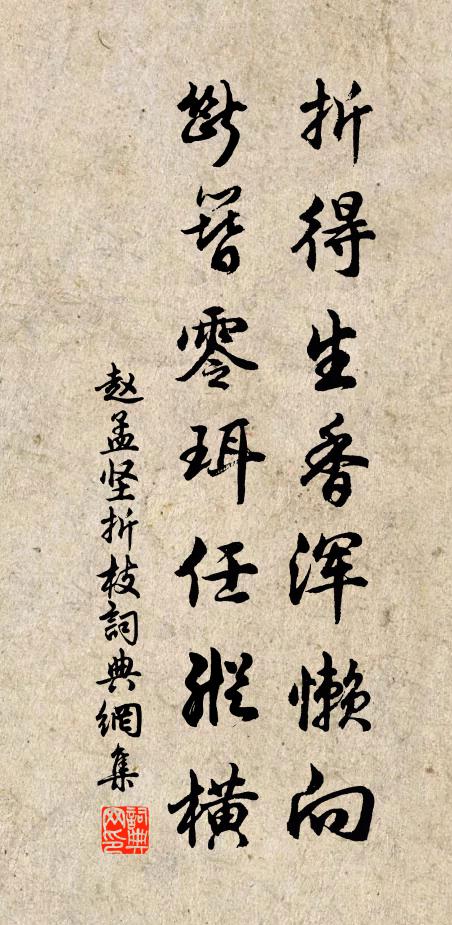 折得生香浑懒向
断簪零珥任纵横
赵孟坚折枝詞典網集
詞典网印